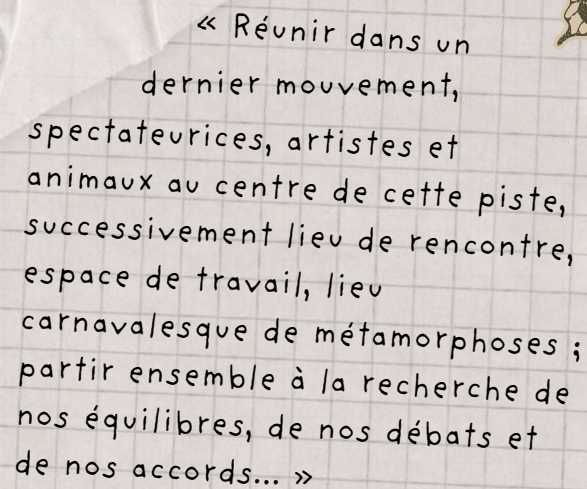 « Réunir dans un
dernier mouvement,
spectateurices, artistes et
animaux au centre de cette piste,
successivement lieu de rencontre,
espace de travail, lieu
carnavalesque de métamorphoses ;
partir ensemble à la recherche de
nos équilibres, de nos débats et
de nos accords... »